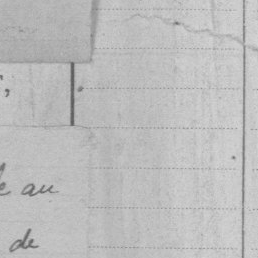 au
de